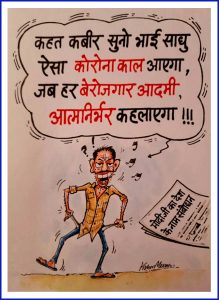 कहत कबीर सुनो भाई साधु
ऐसा कोरोना काल आएगा,
जब हर बेरोजगार आदमी,
आत्मनिर्भर कहलाएगा !!!
मोदीजी का देश
के नाम संबोधन